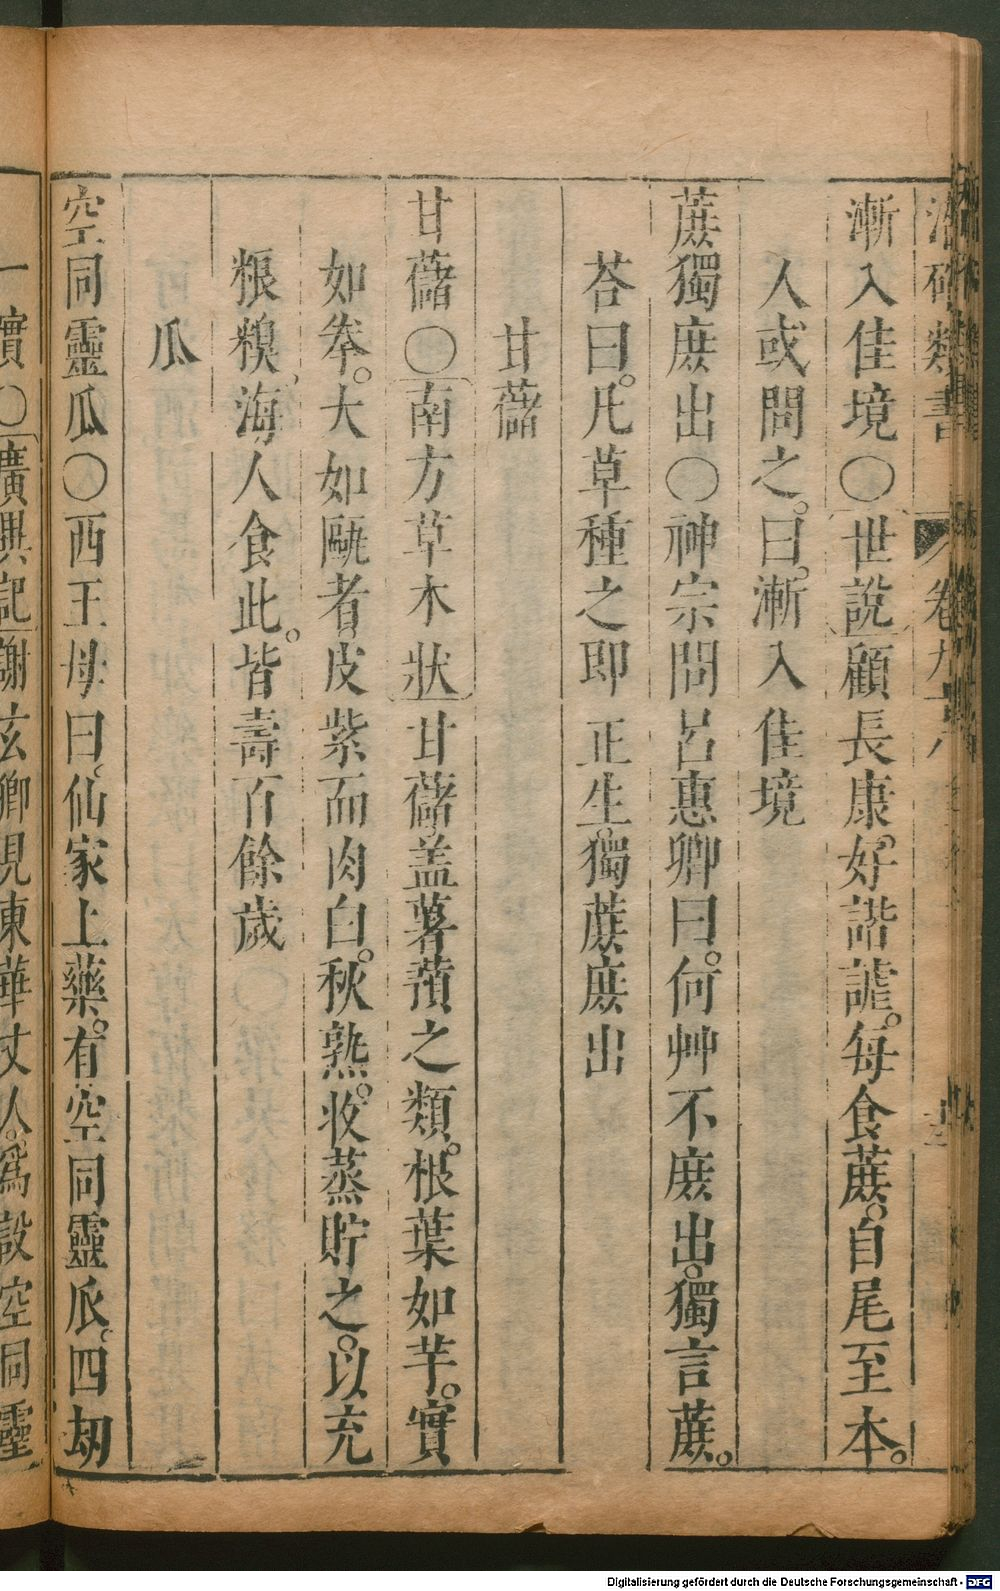 漸入佳境○世說顧長康。好諧謔。每食蔗。自尾至本。
人或問之。曰。漸入佳境
蔗獨庶出○神宗問呂惠卿曰。何艸不庶出。獨言蔗。
荅曰。凡草種之即正生。獨蔗庶出
甘藷
甘藷○南方草木狀甘藷。盖薯蕷之類。根葉如芋。實
如拳。大如甌者。皮紫而肉白。秋熟。收蒸貯之。以充
粮糗。海人食此。皆壽百餘歲
瓜
空同靈瓜○西王母曰。仙家上藥。有空同靈瓜。四刼
一實○廣輿記謝玄卿見東華丈人。爲設空洞靈
Digitalisierung gefördert durch die Deutsche Forschungsgemeinschaft - DFG